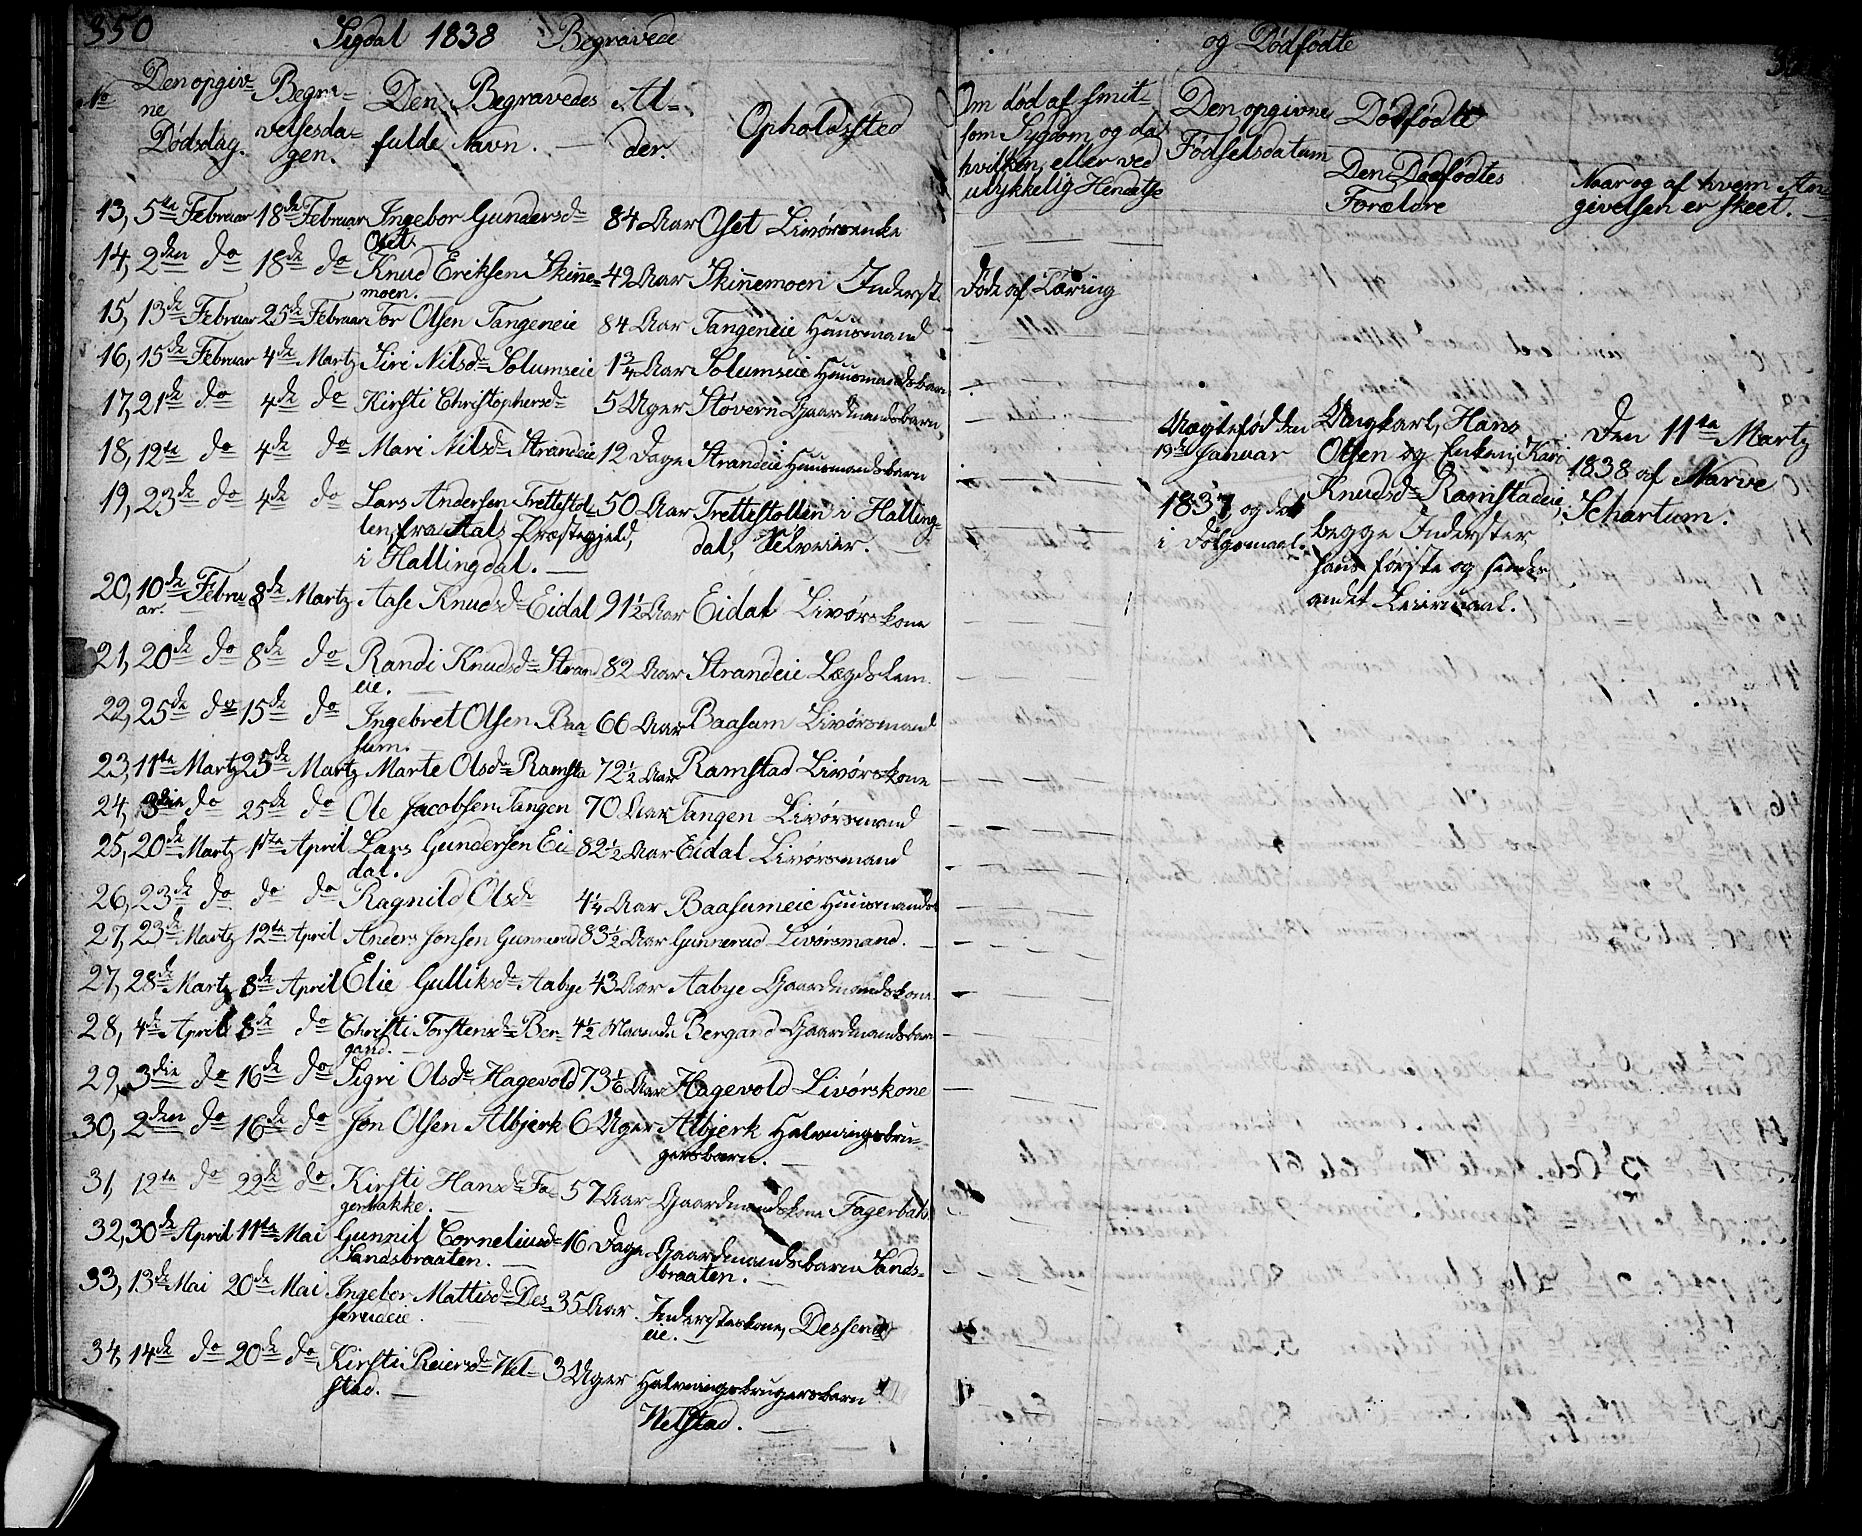 350 Sigdal 1838 Begravede
No Den opgivne Dødsdag. Begravelsesdagen. Den Begravedes fulde Navn. Alder. Opholdssted
13, 5te Februar 18de Februar Ingebor Gundersd. Oset. 84 Aar Oset Livørsenke
14, 2den do 18de do Knud Eriksen Skinnemoen. 42 Aar Skinnemoen Inderst.
15, 13de Februar 25de Februar Tor Olsen Tangeneie 84 Aar Tangeneie Huusmand
16, 15de Februar 4de Martz Siri Nilsd. Solumseie 1 3/4 Aar Solumseie Huusmandsbarn
17, 21de do 4de do Kirsti Christophersd. 5 Uger Støvern Gaardmandsbarn,
18, 12te do 4de do Mari Nilsd. Strandeie 12 Dage Strandeie Huusmandsbarn
19, 23de do 4de do Lars Andersen Trettestol-
len, fra Aals Præstegjeld, i Hallingdal. 50 Aar Trettestollen i Halling-
dal, Selveier.
20, 10de Februar. 8de Martz Aase Knudsd. Eidal 91 1/2 Aar Eidal Livørskone
21, 20de do 8de do Randi Knudsd. Strandeie. 82 Aar Strandeie Lægdslem.
22, 25de do 15de do Ingebret Olsen Baasum. 66 Aar Baasum Livørsmand
23, 11te Martz 25de Martz Marte Olsd. Ramsta 72 1/2 Aar Ramstad Livørskone
24, 3die do 25de do Ole Jacobsen Tangen 70 Aar Tangen Livørsmand
25, 20de Martz 1ste April Lars Gundersen Eidal. 82 1/2 Aar Eidal Livørsmand
26, 23de do do do Ragnild Olsd. 4 1/4 Aar Baasumeie
27, 23de Martz 12te April Anders Jonsen Gunnerud 83 1/2 Aar Gunnerud Livørsmand.
27, 28de Martz 8de April Elie Gulliksd. Aabye 43 Aar Aabye Gaardmandskone.
28, 4de April 8de do Christi Torstensd. Bergand. 4 1/2 Maaned Bergand Gaardmandsbarn
29, 3die do 16de do Sigri Olsd. Hagevold 73 1/6 Aar Hagevold Livørskone
30, 2den do 16de do Jon Olsen Albjerk 6 Uger Albjerk Halvningsbru-
gersbarn.
31, 12te do 22de do Kirsti Hansd. Fagerbakke. 57 Aar Gaardmandskone Fagerbak
32, 30de April 11te Mai Gunnil Corneliusd. Sandsbraaten. 16 Dage Gaardmandsbarn Sands-
braaten.
33, 13de Mai 20de Mai Ingebor Mattisd. Desserudeie. 35 Aar Inderstkone,
34, 14de do 20de do Kirsti Reiersd. Welstad. 3 Uger Halvningsbrugersbarn
Welstad.
og Dødfødte
Om død af smitsom Sygdom, og da hvilken, eller ved ulykkelig Hendelse
Den opgivne Fødselsdatum
Dødfødte
Den Dødfødtes Forældre
Naar og af hvem Angivelsen er skeet.
Døde af Tæring
Uægtefød den
19de Januar
1837 og død
i Dølgsmaal.
Ungkarl, Hans
Olsen og Enken, Kari
Knudsd. Ramstadeie,
begge Inderster
hans første og hendes
andet Leiermaal.
Den 11te Martz
1838 af Narve
Schartum.